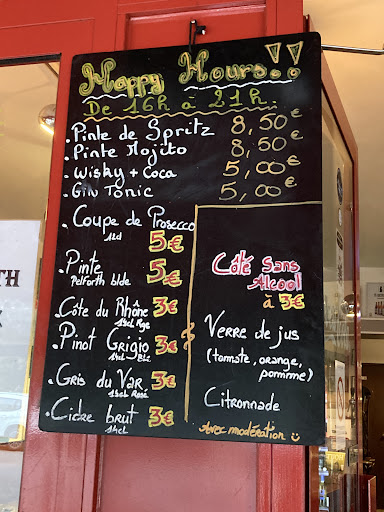 Happy Hours!!
De 16h à 21h.
. Pinte de Spritz 8,50€
. Pinte Mojito 8,50€
. Wisky + Coca 5,00€
. Gin Tonic 5,00€
. Coupe de Prosecco
12cl 5€
. Pinte 5€
Pelforth blde
. Côte du Rhône 3€
14cl Rge
. Pinot Grigio 3€
14cl Blc
. Gris du Var 3€
14cl Rosé
. Cidre brut 3€
14cl
Côté Sans
Alcool
à 3€
Verre de jus
(tomate, orange,
pomme)
Citronnade
Avec modération
TH